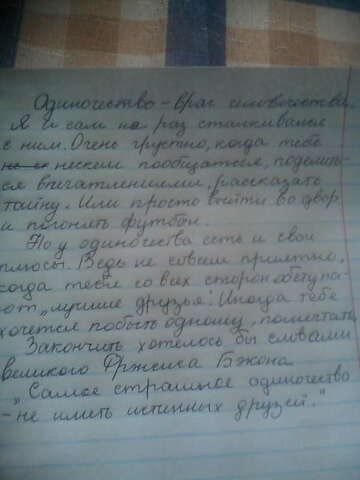 Одиночество - враг человечества.
Я и сам не раз сталкивался
с ним. Очень грустно, когда тебе
не с нескем пообщаться, поделить-
ся впечатлениями, рассказать
тайну. Или просто выйти во двор
и погонять футбол.
Но у одиночества есть и свои
плюсы. Ведь не совсем приятно,
когда тебя со всех сторон обступа-
ют „лучшие друзья". Иногда тебе
хочется побыть одному, помечтать
Закончить хотелось бы словами
великого Фрэнсиса Бэкона
„Самое страшное одиночество
- не иметь истинных друзей."